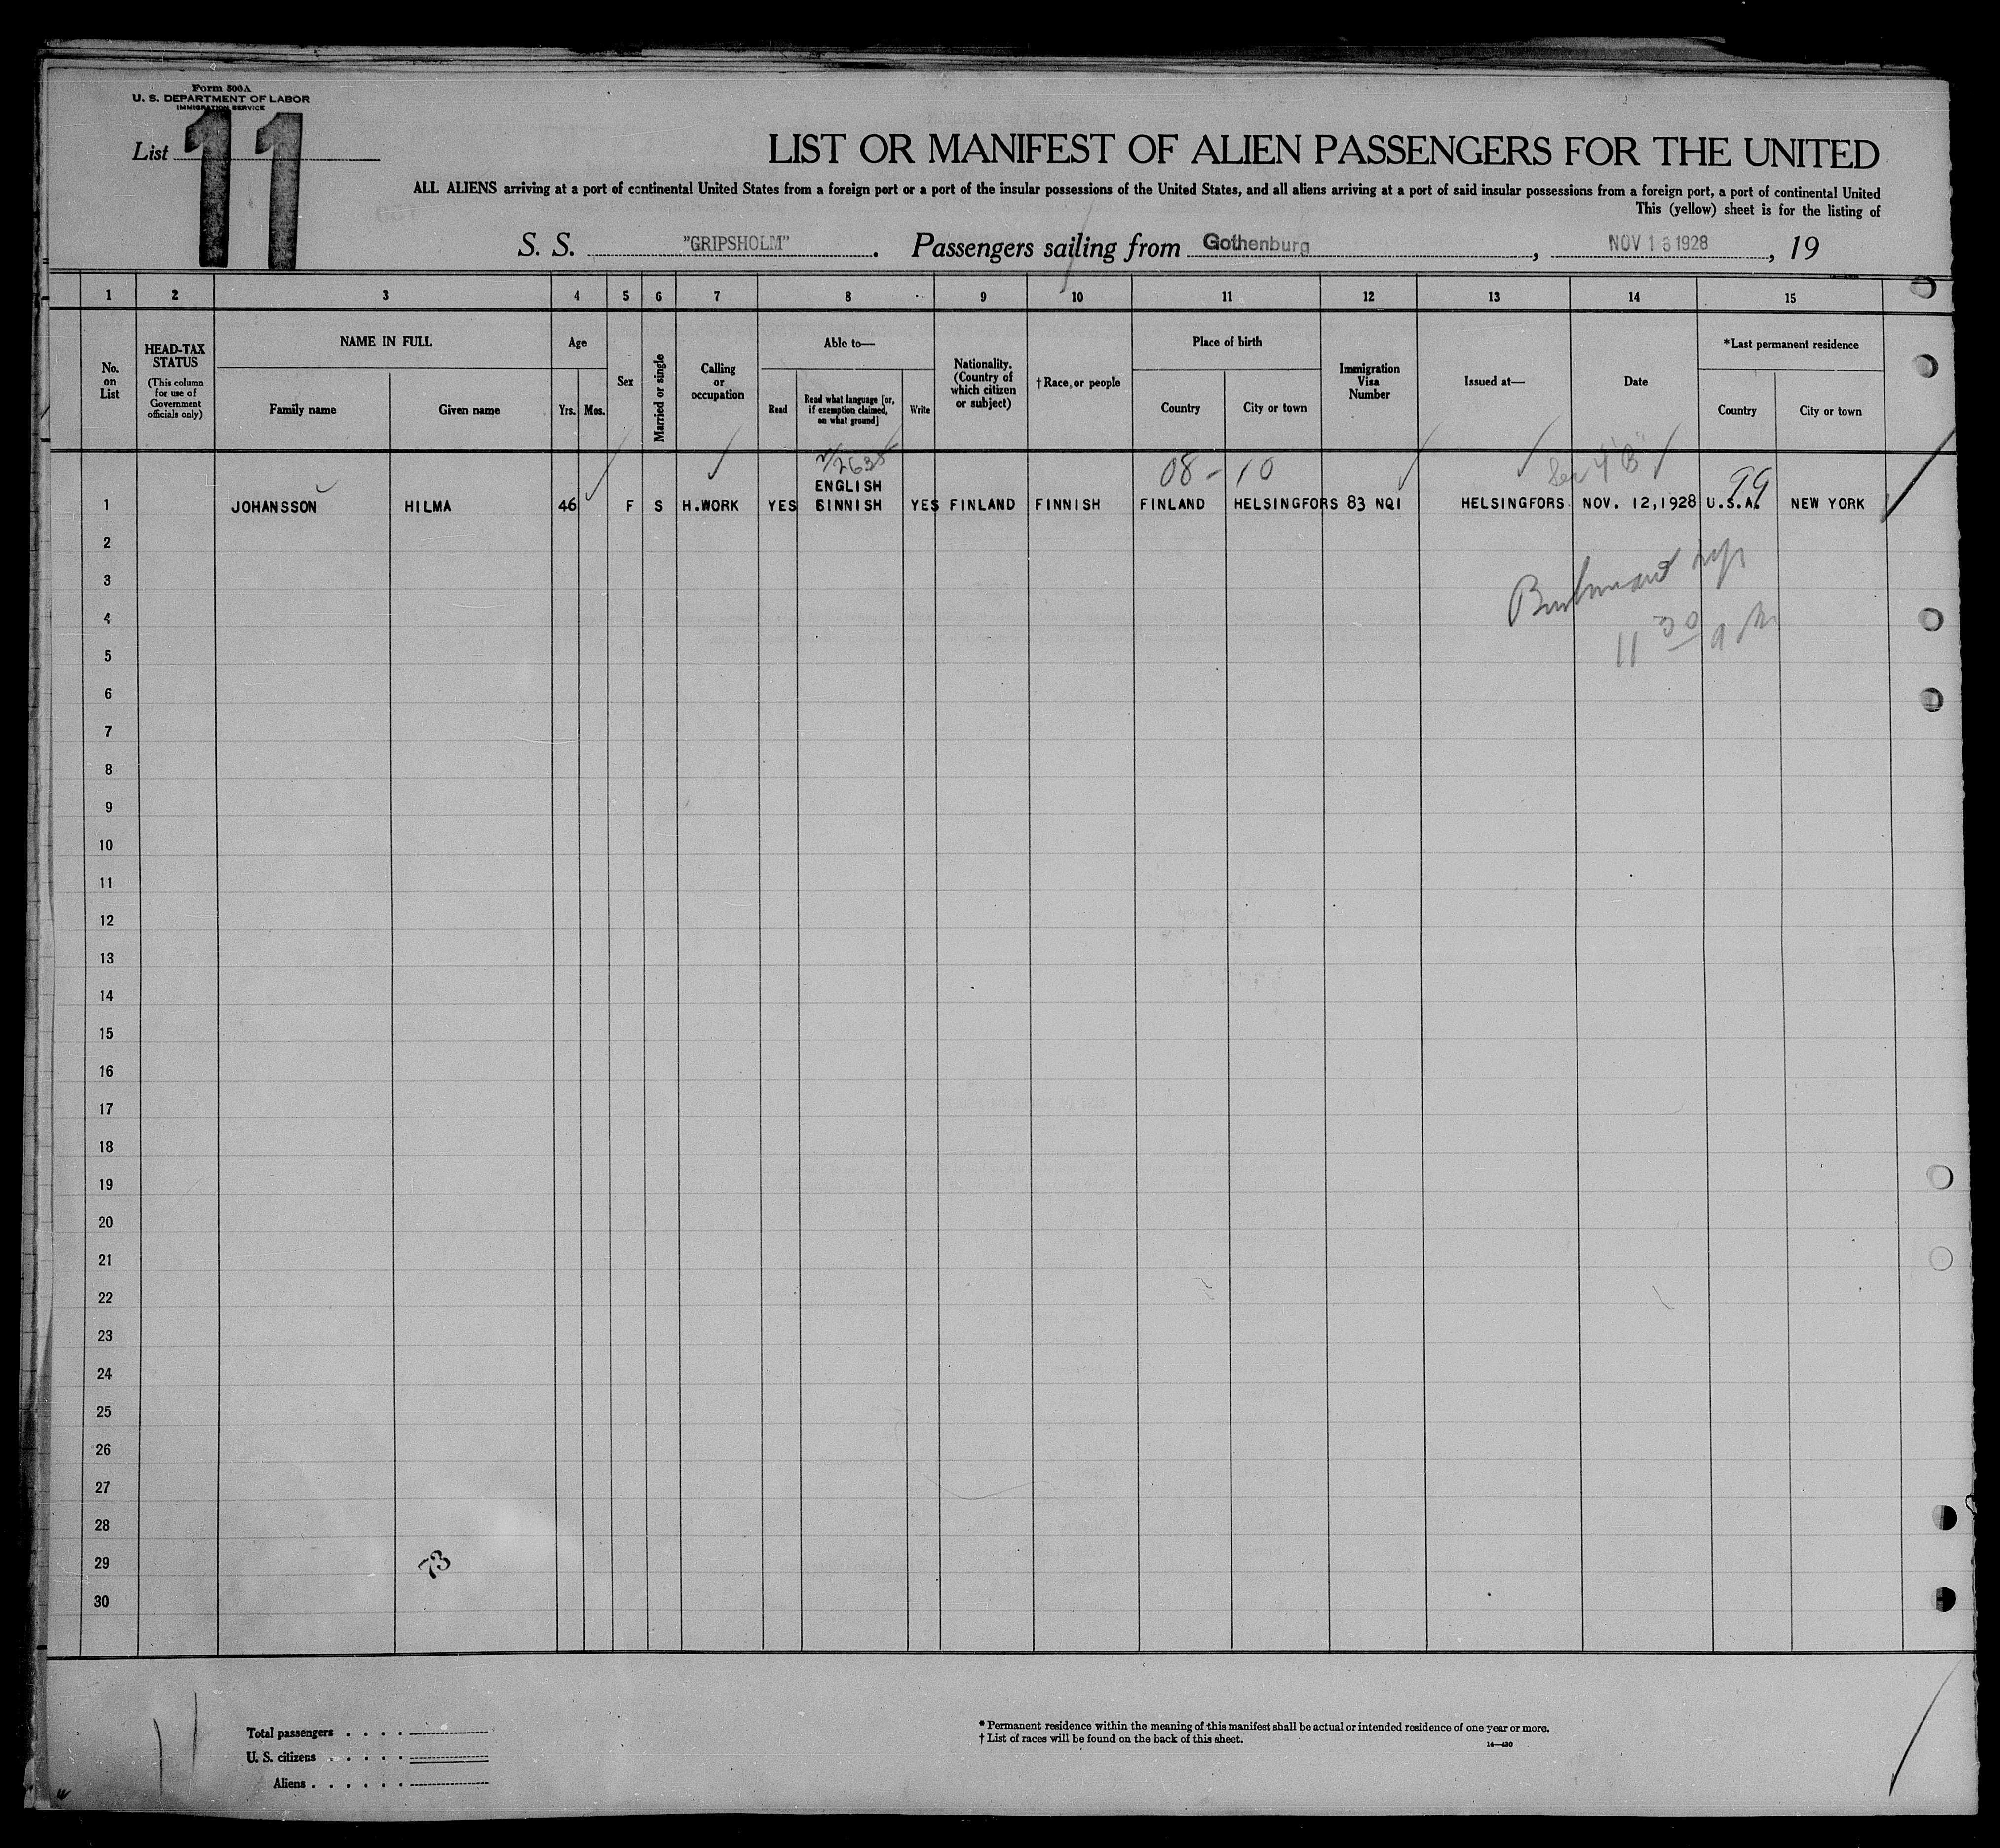 Form 500A
U. S. DEPARTMENT OF LABOR
IMMIGRATION SERVICE
List 11
LIST OR MANIFEST OF ALIEN PASSENGERS FOR THE UNITED
ALL ALIENS arriving at a port of continental United States from a foreign port or a port of the insular possessions of the United States, and all aliens arriving at a port of said insular possessions from a foreign port, a port of continental United
This (yellow) sheet is for the listing of
S. S. "GRIPSHOLM". Passengers sailing from Gothenburg, NOV 16 1928, 19
1 2 3 4 5 6 7 8 9 10 11 12 13 14 15
No. on List
HEAD-TAX STATUS (This column for use of Government officials only)
NAME IN FULL
Family name Given name
Age
Yrs. Mos.
Sex
Married or single
Calling or occupation
Able to—
Read
Read what language [or, if exemption claimed, on what ground]
Write
Nationality. (Country of which citizen or subject)
† Race, or people
Place of birth
Country City or town
Immigration Visa Number
Issued at—
Date
*Last permanent residence
Country City or town
08-10
Sec 4 "B"
99
ENGLISH
1 JOHANSSON HILMA 46 F S H.WORK YES FINNISH YES FINLAND FINNISH FINLAND HELSINGFORS 83 NQI HELSINGFORS NOV. 12,1928 U.S.A. NEW YORK
2
3
4
11 30 AM
5
6
7
8
9
10
11
12
13
14
15
16
17
18
19
20
21
22
23
24
25
26
27
28
29
73
30
Total passengers . . . .
U. S. citizens . . . . .
Aliens . . . . . .
* Permanent residence within the meaning of this manifest shall be actual or intended residence of one year or more.
† List of races will be found on the back of this sheet.
14—430